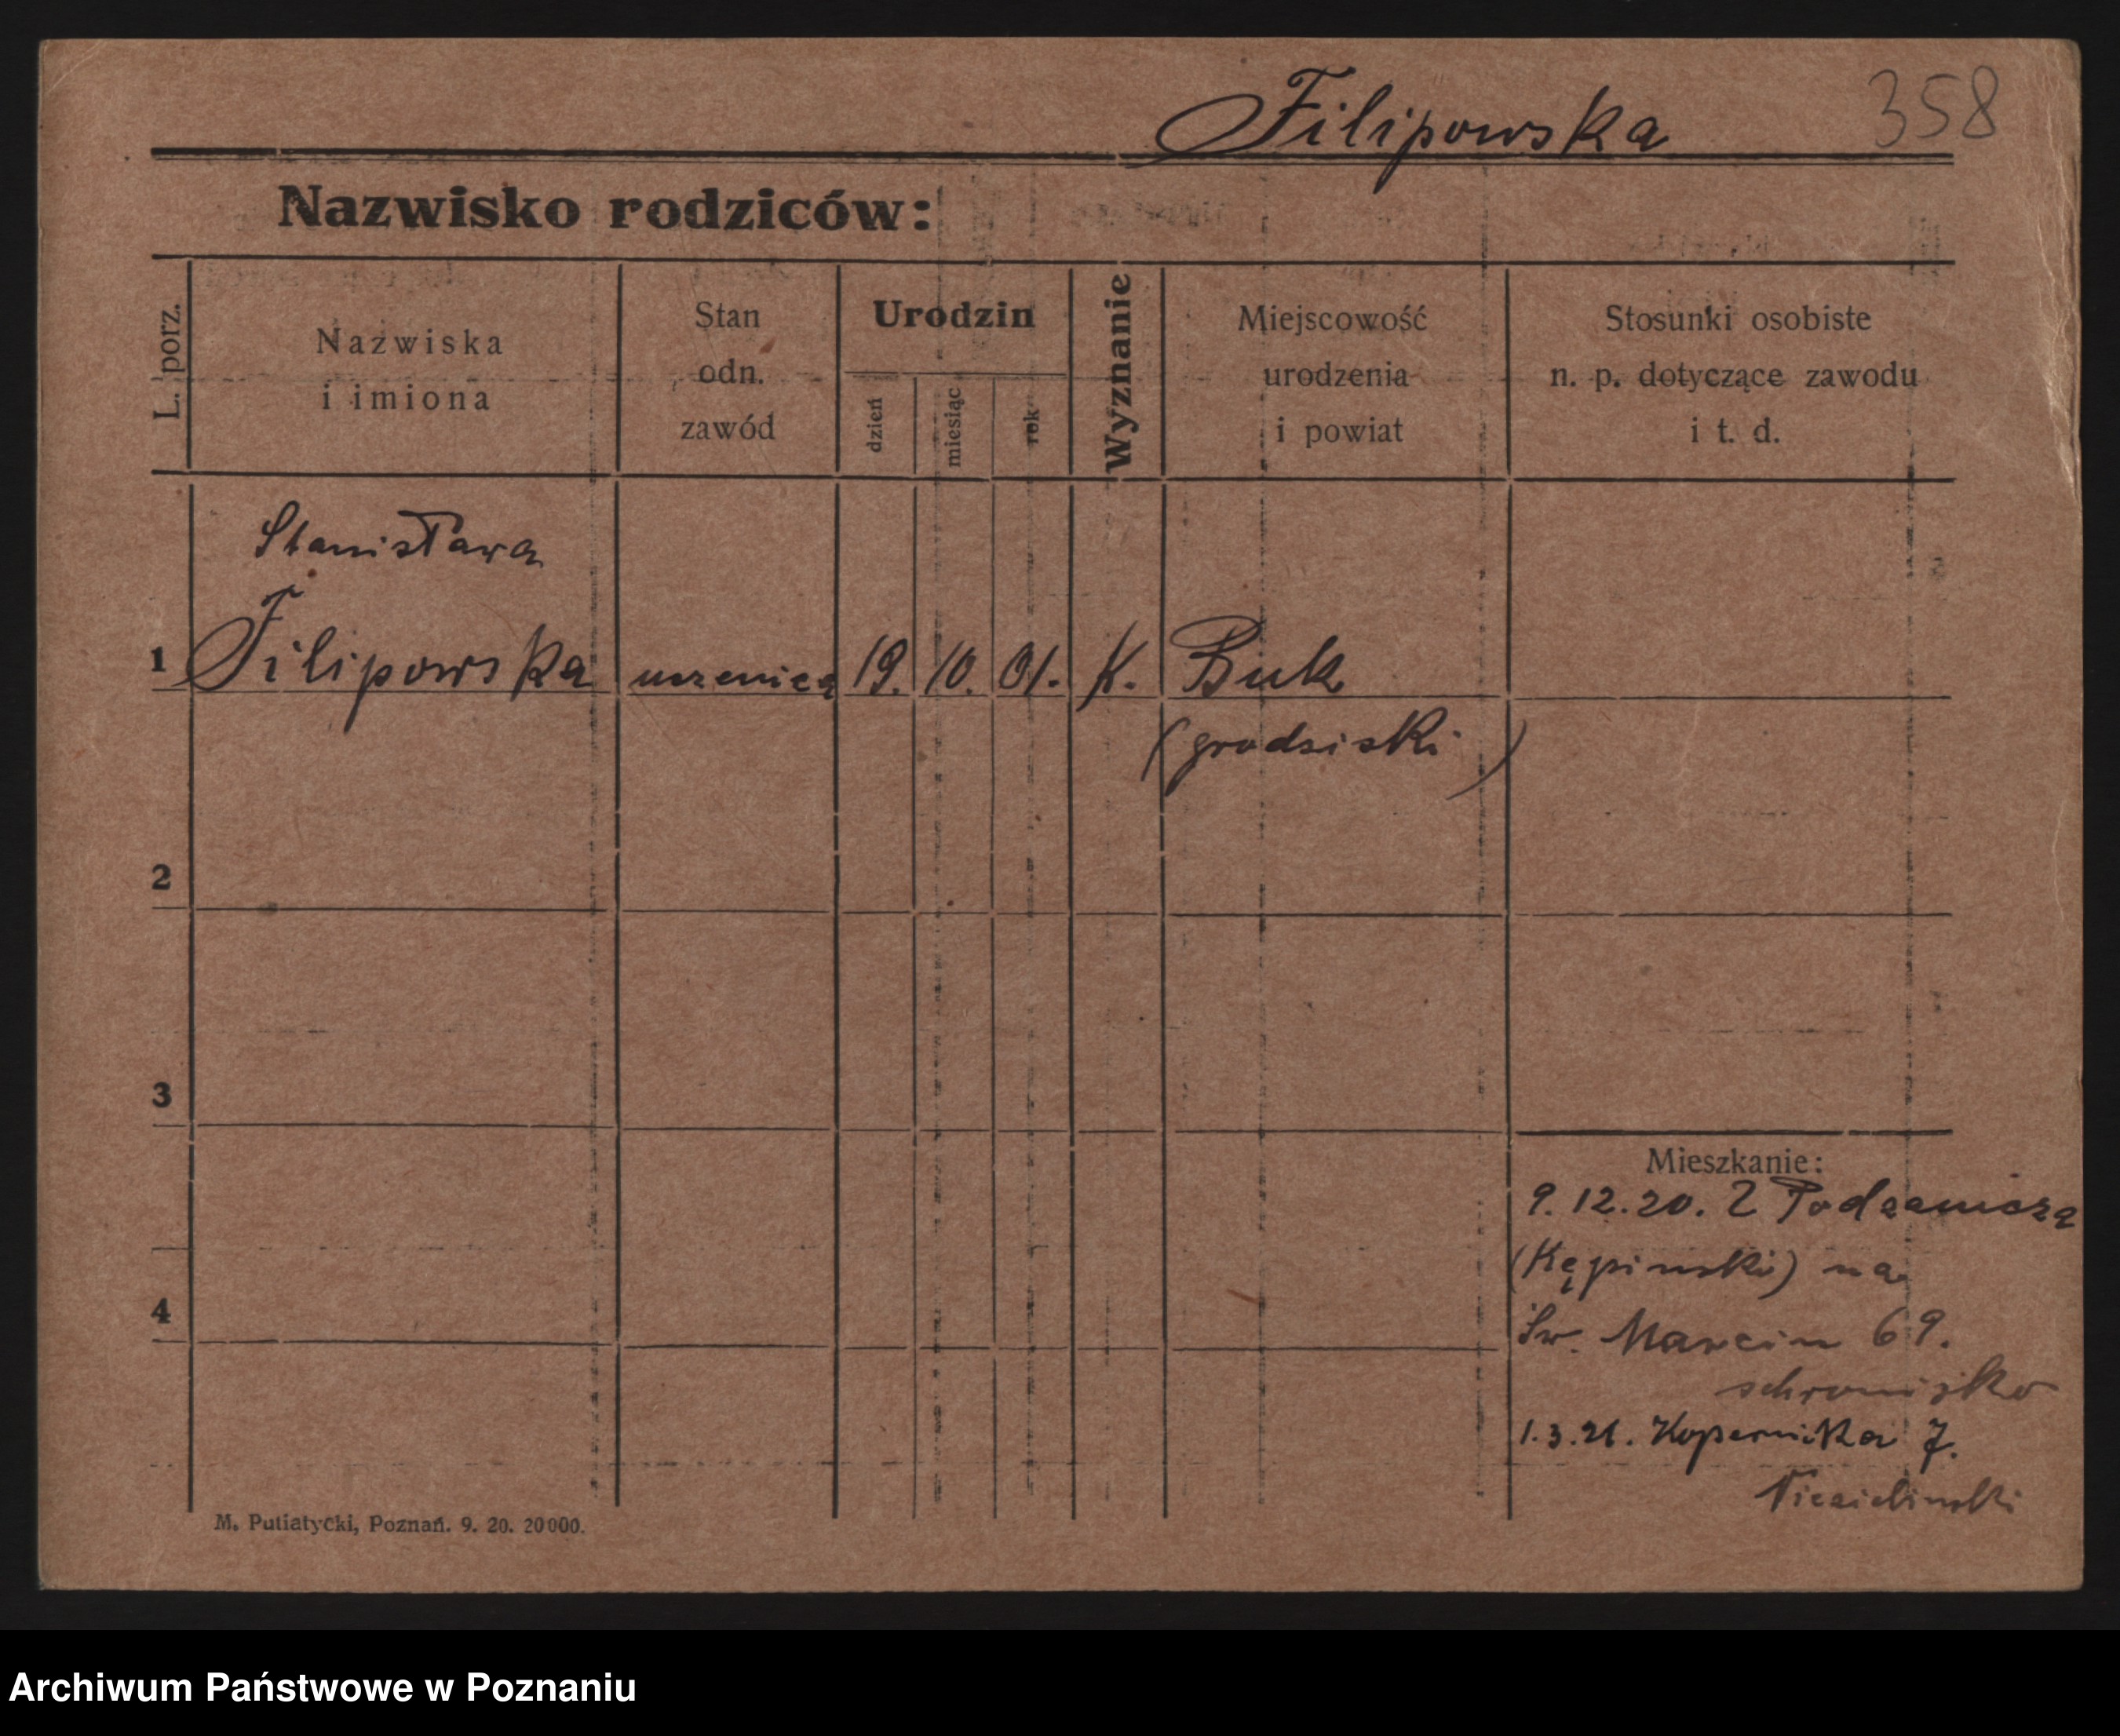 Filipowska 358
Nazwisko rodziców:
L. porz.
Nazwiska
i imiona
Stan
odn.
zawód
Urodzin
dzień
miesiąc
rok
Wyznanie
Miejscowość
urodzenia
i powiat
Stosunki osobiste
n. p. dotyczące zawodu
i t. d.
Stanisława
1 Filipowska uczenica 19. 10. 01. K. Buk
(grodziski)
2
3
Mieszkanie:
9.12.20. Z
(Kępiński) na
4
Św. Marcin 69.
schronisko
1.3.21. Kopernika 7.
M. Putiatycki, Poznań. 9. 20. 20000.
Archiwum Państwowe w Poznaniu